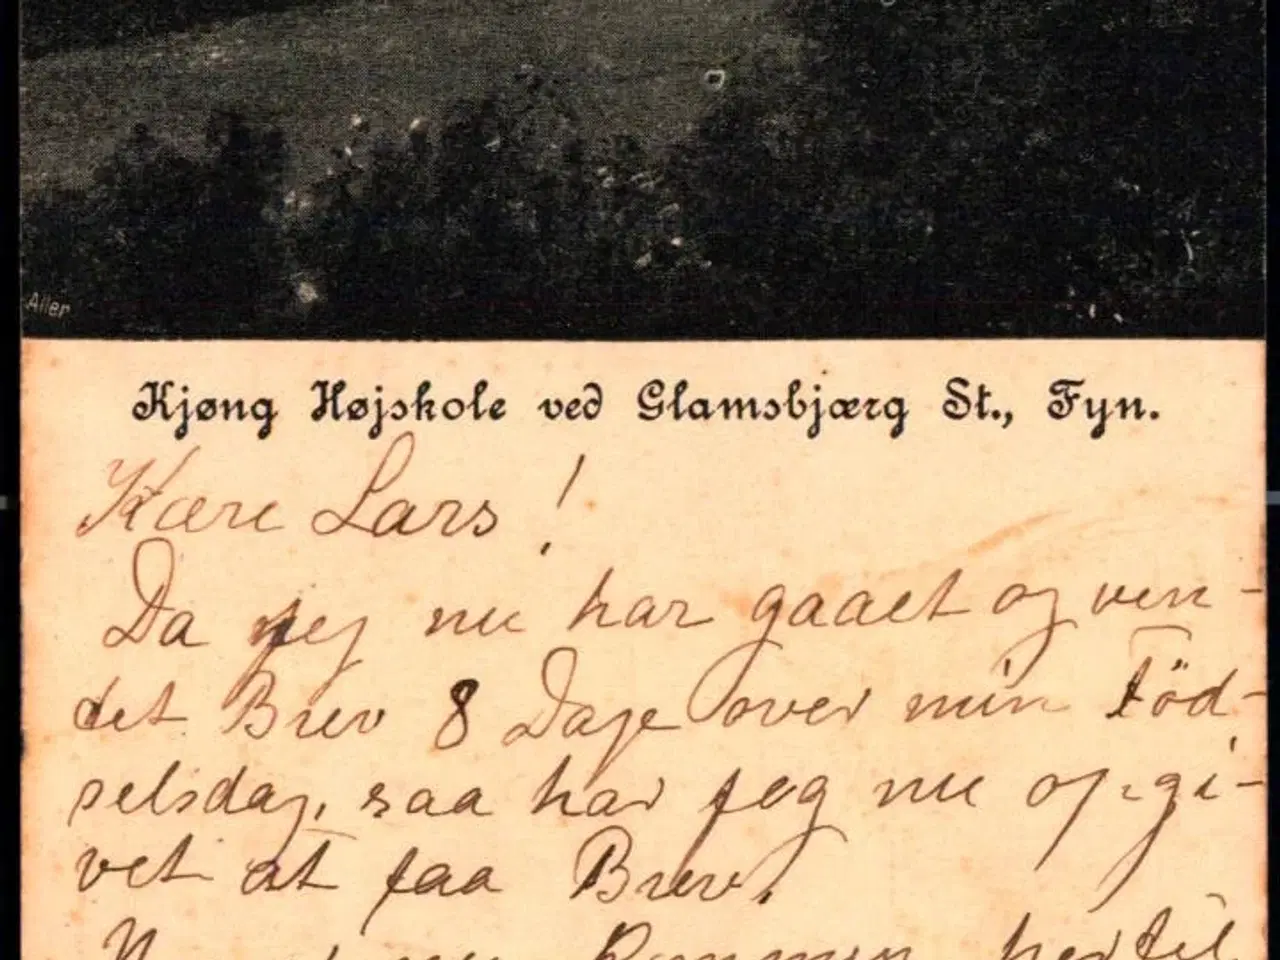 Aller
Kjøng Højskole ved Glamsbjærg St., Fyn.
Kære Lars!
Da jeg nu har gaaet og ven-
det Brev 8 Dage over min Föd-
selsdag, saa har jeg nu opgi-
vet at faa Brev.
hertil